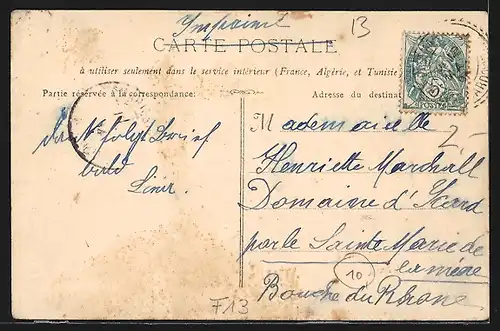 Imprimé
13
CARTE POSTALE
à utiliser seulement dans le service intérieur (France, Algérie, et Tunisie)
Partie réservée à la correspondance:
Adresse du destinat
folgt Brief
bald
Mademoiselle
2-
Henriette Marshall
Domaine d'Icard
par le Sainte Marie de
la mère
10
Bouche du Rhone
F13